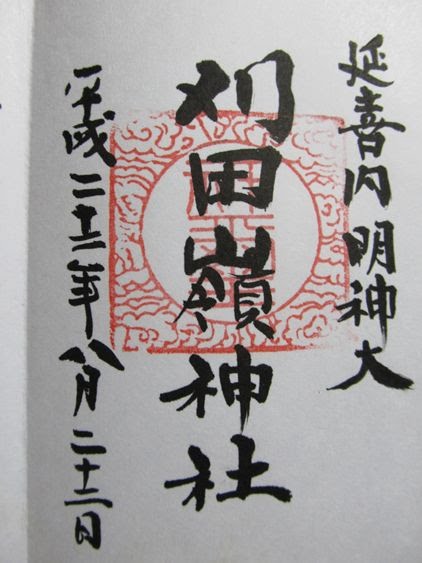 延喜内明神大
刈田嶺神社
平成二十二年八月二十二日